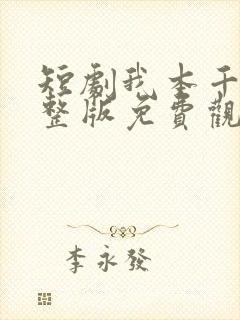 短劇我本千
整版免費觀
李永發